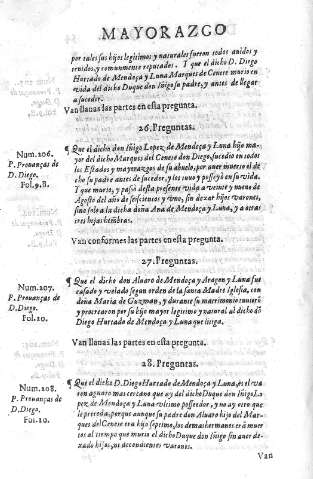 MAYORAZGO
por tales sus hijos legitimos y naturales fueron todos auidos y
tenidos, y comunmente reputados. Y que el dicho D. Diego
Hurtado de Mendoça y Luna Marques de Cenete murio en
vida del dicho Duque don Iñigo su padre, y antes de llegar
a suceder.
Van llanas las partes en esta pregunta.
26. Preguntas.
Num. 206.
P. Prouanças de
D. Diego.
Fol. 9. B.
¶ Que el dicho don Iñigo Lopez de Mendoça y Luna hijo ma
yor del dicho Marques del Cenete don Diego, sucedio en todos
los Estados y mayorazgos de su abuelo, por auer muerto el di
cho su padre antes de suceder, y los tuuo y posseyò en su vida.
Y que murio, y passò desta presente vida a veinte y nueue de
Agosto del año de seiscientos y vno, sin dexar hijos varones,
sino solo a la dicha doña Ana de Mendoça y Luna, y a otras
tres hijas hembras.
Van conformes las partes en esta pregunta.
27. Preguntas.
Num. 207.
P. Prouanças de
D. Diego.
Fol. 10.
¶ Que el dicho don Aluaro de Mendoça y Aragon y Luna fue
casado y velado segun orden de la santa Madre Iglesia, con
doña Maria de Guzman, y durante su matrimonio huuierõ
y procrearon por su hijo mayor legitimo y natural al dicho dõ
Diego Hurtado de Mendoça y Luna que litiga.
Van llanas las partes en esta pregunta.
28. Preguntas.
Num. 208.
P. Prouanças de
D. Diego.
Fol. 10.
¶ Que el dicho D. Diego Hurtado de Mendoça y Luna, es el va
ron agnato mas cercano que ay del dicho Duque don Iñigo Lo
pez de Mendoça y Luna vltimo possedor, y no ay otro que
le preceda, porque aunque su padre don Aluaro hijo del Mar
ques del Cenete era hijo septimo, los demas hermanos erã mu
ertos al tiempo que murio el dicho Duque don Iñigo sin auer de
xado hijos, ni decendientes varones.
Van